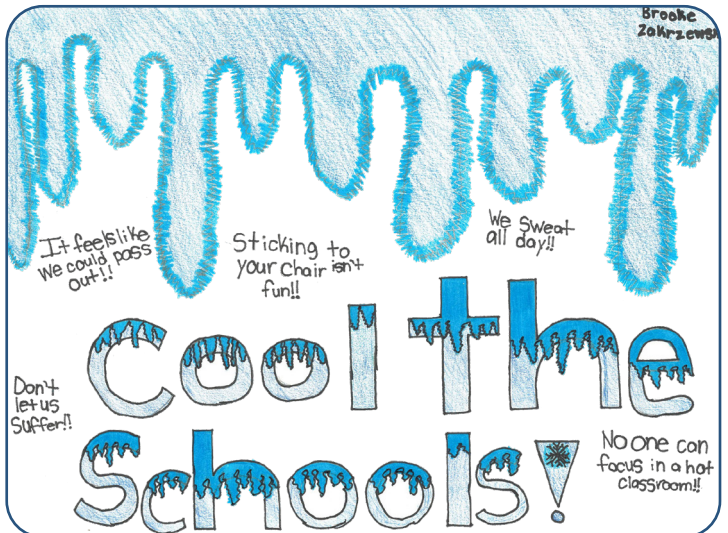 Brooke
Zakrzewski
It feels like
we could pass
out!!
Sticking to
your chair isn't
fun!!
We sweat
all day!!
Cool the
Don't
let us
Suffer!!
Schools!
No one can
focus in a hot
classroom!!